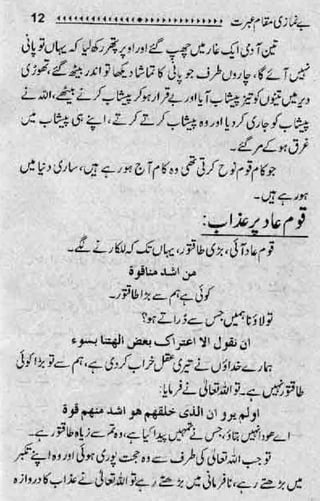 بے نمازی مقام عبرت 12
تین آدمی ایک غار میں چھپ گئے اور اوپر پتھر رکھ لیا کہ یہاں تو پانی
نہیں آئے گا، چاروں طرف جو پانی کا تماشا دیکھا تو اندر بیٹھ گئے، تھوڑی
دیر میں تینوں کو تیز پیشاب آیا اور بے قرار ہو کر پیشاب کرنے بیٹھے، اللہ نے
پیشاب کو جاری کر دیا اور وہ پیشاب کرتے کرتے، اپنے ہی پیشاب میں
غرق ہو کے مر گئے۔
جو کام قوم نوح کرتی تھی وہ کام آج ہو رہے ہیں، ساری دنیا میں
ہو رہے ہیں۔
قوم عاد پر عذاب:
قوم عاد آئی، بڑی طاقتور، یہاں تک کہ للکارنے لگے۔
من اشد مناقوة
کوئی ہے ہم سے بڑا طاقتور۔
تو لاؤ نا ہمیں جس سے ڈراتے ہو؟
ان نقول الا اعتراک بعض الهتنا بسوء
ہمارے خداؤں نے تیری عقل خراب کر دی ہے، ہم سے تو بڑا کوئی
طاقتور نہیں ہے۔ تو اللہ تعالیٰ نے فرمایا:
اولم یرو ان الذی خلقهم هو اشد منهم قوة
اے ھود انہیں بتاؤ، جس نے تمہیں پیدا کیا ہے، وہ تم سے زیادہ طاقتور ہے۔
تو جب اللہ تعالیٰ کی طرف سے وہ حجت پوری ہوئی اور وہ اپنے تکبر
میں بڑھتے رہے، نافرمانی میں بڑھتے رہے تو اللہ تعالیٰ نے عذاب کا دروازہ